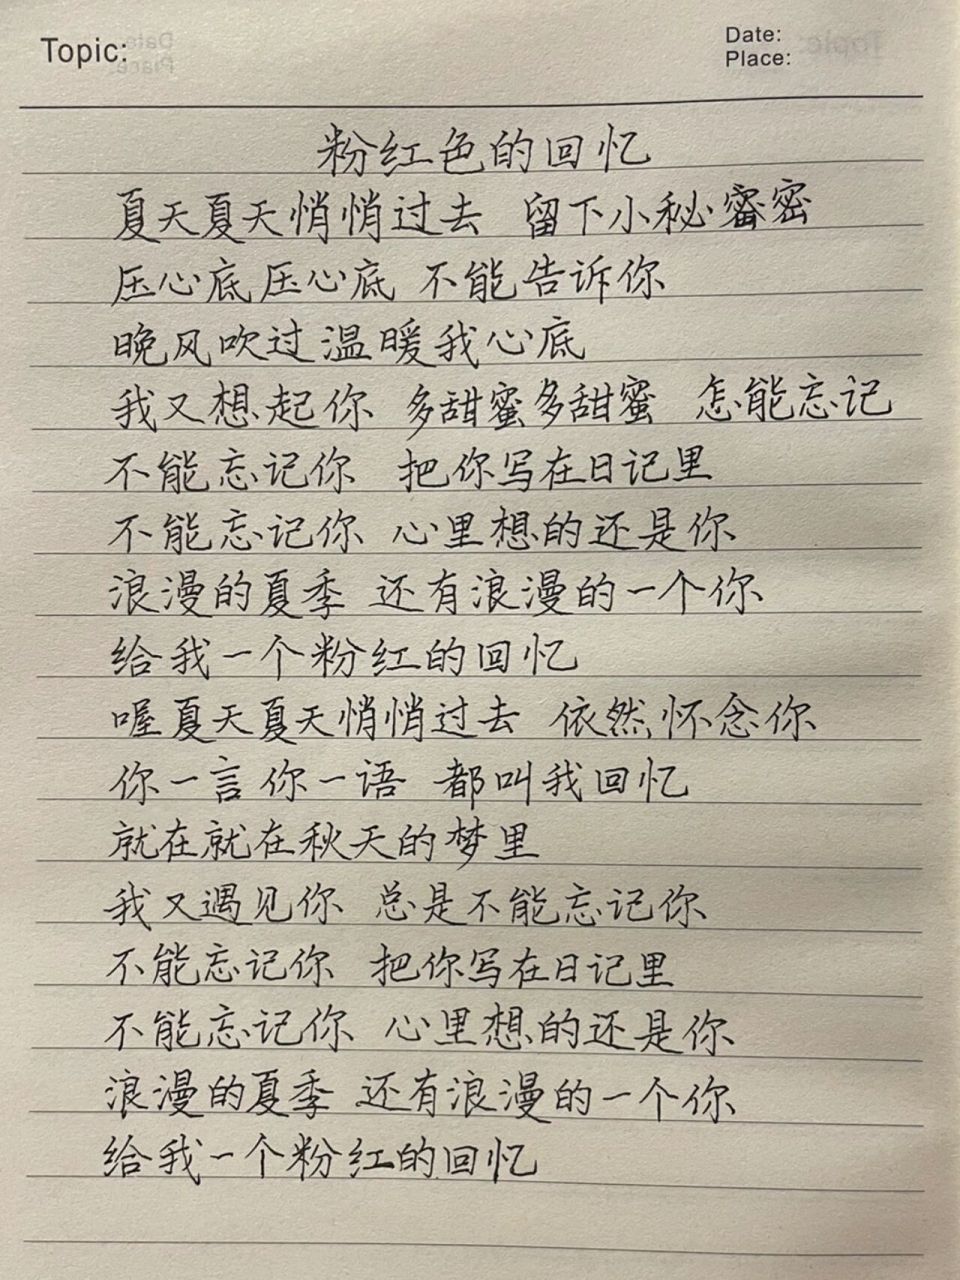 Topic:
Date:
Place:
粉红色的回忆
夏天夏天悄悄过去 留下小秘密密
压心底压心底 不能告诉你
晚风吹过温暖我心底
我又想起你 多甜蜜多甜蜜 怎能忘记
不能忘记你 把你写在日记里
不能忘记你 心里想的还是你
浪漫的夏季 还有浪漫的一个你
给我一个粉红的回忆
喔夏天夏天悄悄过去 依然怀念你
你一言你一语 都叫我回忆
就在就在秋天的梦里
我又遇见你 总是不能忘记你
不能忘记你 把你写在日记里
不能忘记你 心里想的还是你
浪漫的夏季 还有浪漫的一个你
给我一个粉红的回忆